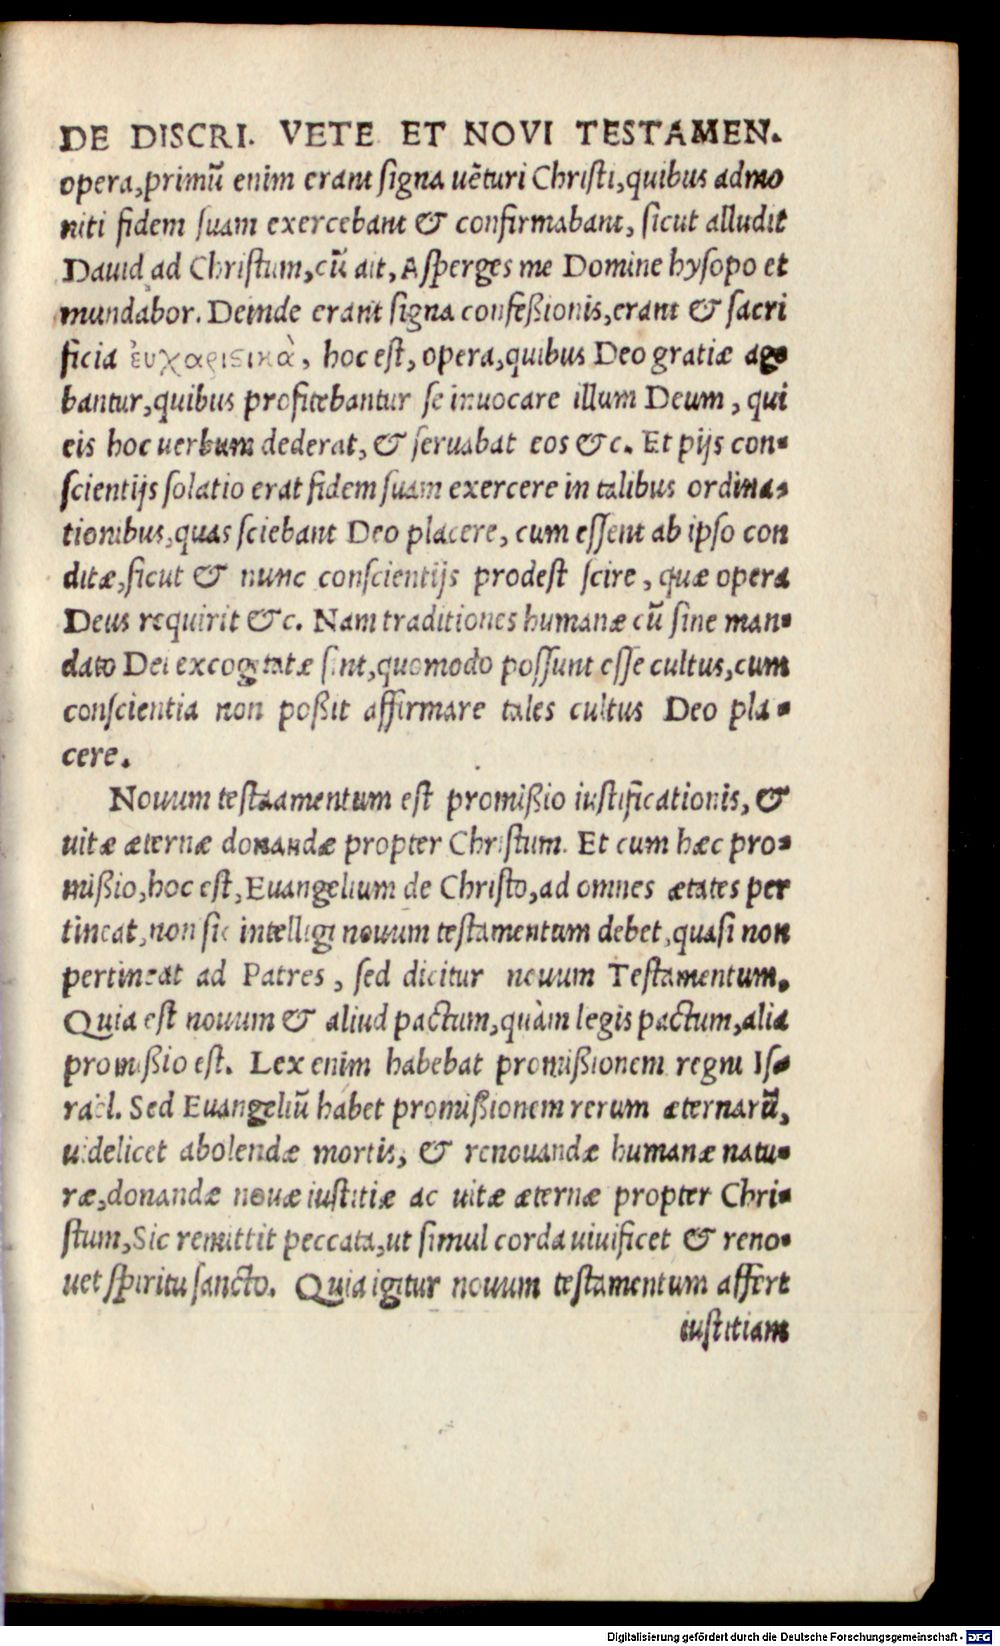 DE DISCRI. VETE ET NOVI TESTAMEN.
opera,primũ enim erant ſigna uẽturi Chriſti,quibus admo
niti fidem ſuam exercebant & confirmabant, ſicut alludit
Dauid ad Chriſtum,cũ ait, Aſperges me Domine hyſopo et
mundabor. Deinde erant ſigna confeßionis,erant & ſacri
ficia ἐυχαριϛικὰ, hoc eſt, opera,quibus Deo gratiæ age
bantur,quibus profitebantur ſe inuocare illum Deum, qui
eis hoc uerbum dederat, & ſeruabat eos &c. Et pijs con-
ſcientijs ſolatio erat fidem ſuam exercere in talibus ordina-
tionibus,quas ſciebant Deo placere, cum eſſent ab ipſo con
ditæ,ſicut & nunc conſcientijs prodeſt ſcire, quæ opera
Deus requirit &c. Nam traditiones humanæ cũ ſine man-
dato Dei excogitatæ ſint,quomodo poſſunt eſſe cultus,cum
conſcientia non poßit affirmare tales cultus Deo pla-
cere.
Nouum teſtaamentum eſt promißio iuſtificationis, &
uitæ æternæ donandæ propter Chriſtum. Et cum hæc pro-
mißio,hoc eſt,Euangelium de Chriſto,ad omnes ætates per
tineat,non ſic intelligi nouum teſtamentum debet,quaſi non
pertineat ad Patres, ſed dicitur nouum Teſtamentum.
Quia eſt nouum & aliud pactum,quàm legis pactum,alia
promißio eſt. Lex enim habebat promißionem regni Iſ-
raël. Sed Euangeliũ habet promißionem rerum æternarũ,
uidelicet abolendæ mortis, & renouandæ humanæ natu-
ræ,donandæ nouæ iuſtitiæ ac uitæ æternæ propter Chri-
ſtum,Sic remittit peccata,ut ſimul corda uiuificet & reno-
uet ſpiritu ſancto. Quia igitur nouum teſtamentum affert
iuſtitiam
Digitalisierung gefördert durch die Deutsche Forschungsgemeinschaft - DFG